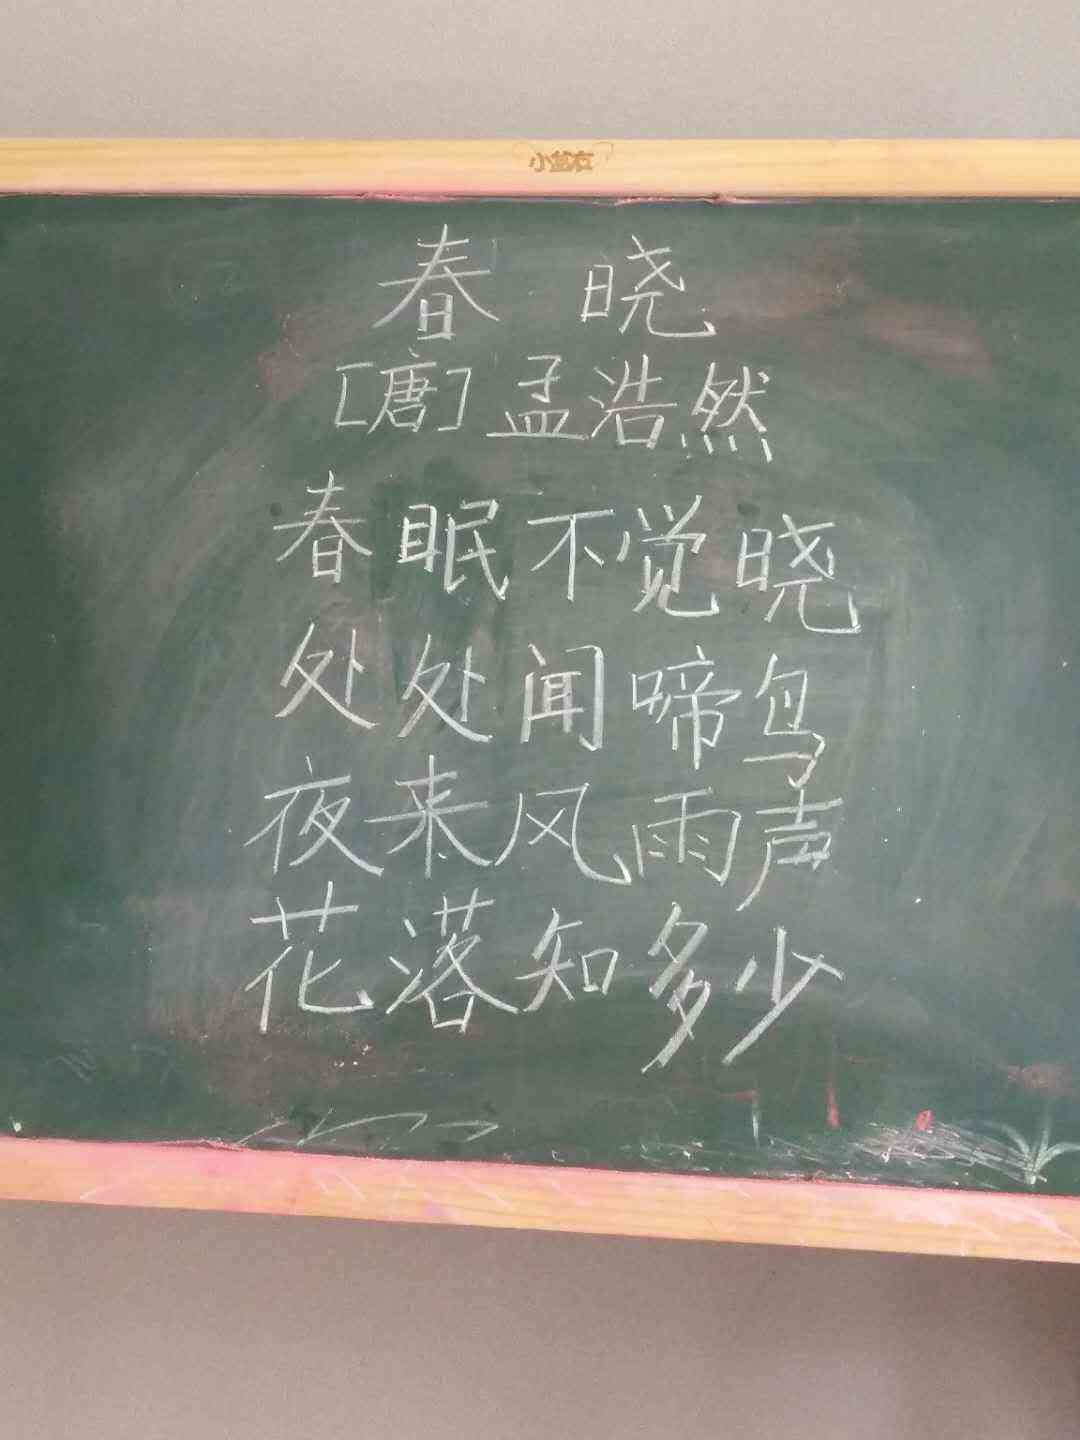 春 晓
[唐]孟浩然
春眠不觉晓
处处闻啼鸟
夜来风雨声
花落知多少